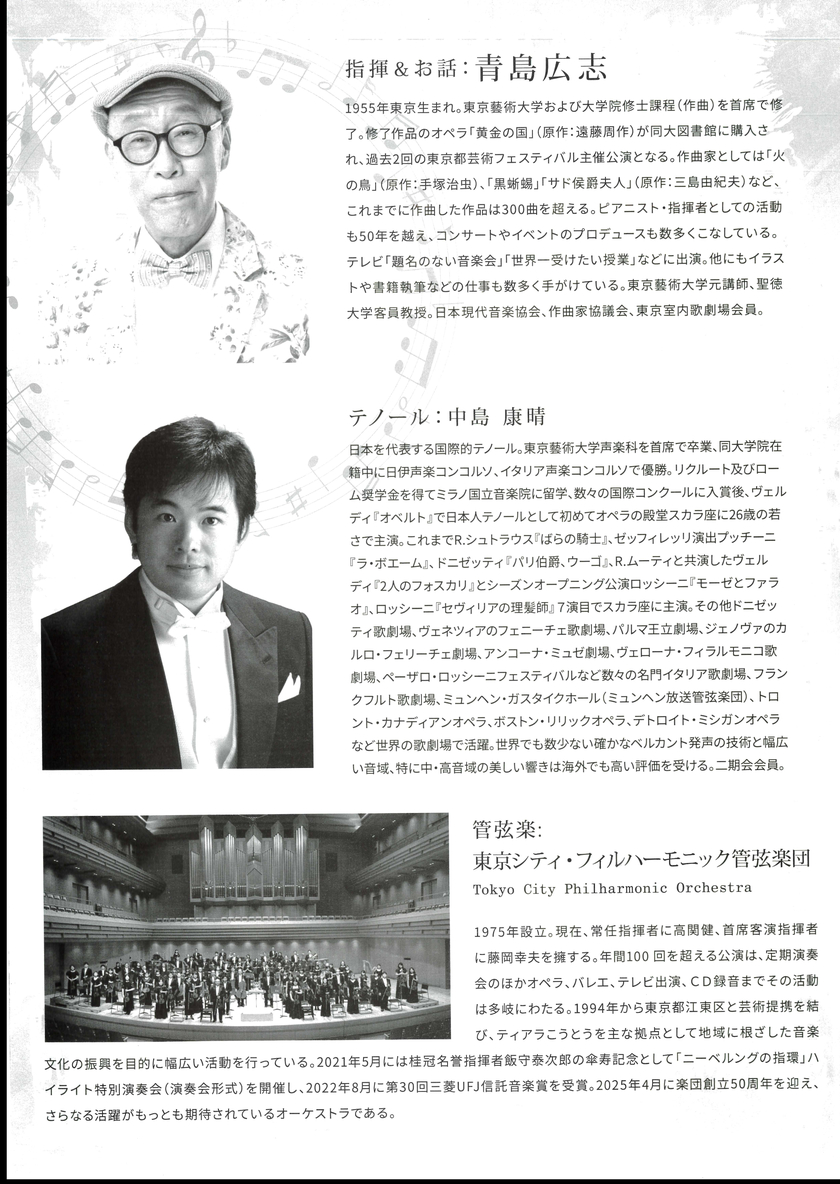 指揮&お話：青島広志
1955年東京生まれ。東京藝術大学および大学院修士課程（作曲）を首席で修
了。修了作品のオペラ「黄金の国」（原作：遠藤周作）が同大図書館に購入さ
れ、過去2回の東京都芸術フェスティバル主催公演となる。作曲家としては「火
の鳥」（原作：手塚治虫）、「黒蜥蜴」「サド侯爵夫人」（原作：三島由紀夫）など、
これまでに作曲した作品は300曲を超える。ピアニスト・指揮者としての活動
も50年を越え、コンサートやイベントのプロデュースも数多くこなしている。
テレビ「題名のない音楽会」「世界一受けたい授業」などに出演。他にもイラス
トや書籍執筆などの仕事も数多く手がけている。東京藝術大学元講師、聖徳
大学客員教授。日本現代音楽協会、作曲家協議会、東京室内歌劇場会員。
テノール：中島 康晴
日本を代表する国際的テノール。東京藝術大学声楽科を首席で卒業、同大学院在
籍中に日伊声楽コンコルソ、イタリア声楽コンコルソで優勝。リクルート及びロー
ム奨学金を得てミラノ国立音楽院に留学、数々の国際コンクールに入賞後、ヴェル
ディ『オベルト』で日本人テノールとして初めてオペラの殿堂スカラ座に26歳の若
さで主演。これまでR.シュトラウス『ばらの騎士』、ゼッフィレッリ演出プッチーニ
『ラ・ボエーム』、ドニゼッティ『パリ伯爵、ウーゴ』、R.ムーティと共演したヴェル
ディ『2人のフォスカリ』とシーズンオープニング公演ロッシーニ『モーゼとファラ
オ』、ロッシーニ『セヴィリアの理髪師』7演目でスカラ座に主演。その他ドニゼッ
ティ歌劇場、ヴェネツィアのフェニーチェ歌劇場、パルマ王立劇場、ジェノヴァのカ
ルロ・フェリーチェ劇場、アンコーナ・ミュゼ劇場、ヴェローナ・フィラルモニコ歌
劇場、ペーザロ・ロッシーニフェスティバルなど数々の名門イタリア歌劇場、フラン
クフルト歌劇場、ミュンヘン・ガスタイクホール（ミュンヘン放送管弦楽団）、トロ
ント・カナディアンオペラ、ボストン・リリックオペラ、デトロイト・ミシガンオペラ
など世界の歌劇場で活躍。世界でも数少ない確かなベルカント発声の技術と幅広
い音域、特に中・高音域の美しい響きは海外でも高い評価を受ける。二期会会員。
管弦楽:
東京シティ・フィルハーモニック管弦楽団
Tokyo City Philharmonic Orchestra
1975年設立。現在、常任指揮者に高関健、首席客演指揮者
に藤岡幸夫を擁する。年間100 回を超える公演は、定期演奏
会のほかオペラ、バレエ、テレビ出演、ＣＤ録音までその活動
は多岐にわたる。1994年から東京都江東区と芸術提携を結
び、ティアラこうとうを主な拠点として地域に根ざした音楽
文化の振興を目的に幅広い活動を行っている。2021年5月には桂冠名誉指揮者飯守泰次郎の傘寿記念として「ニーベルングの指環」ハ
イライト特別演奏会（演奏会形式）を開催し、2022年8月に第30回三菱UFJ信託音楽賞を受賞。2025年4月に楽団創立50周年を迎え、
さらなる活躍がもっとも期待されているオーケストラである。